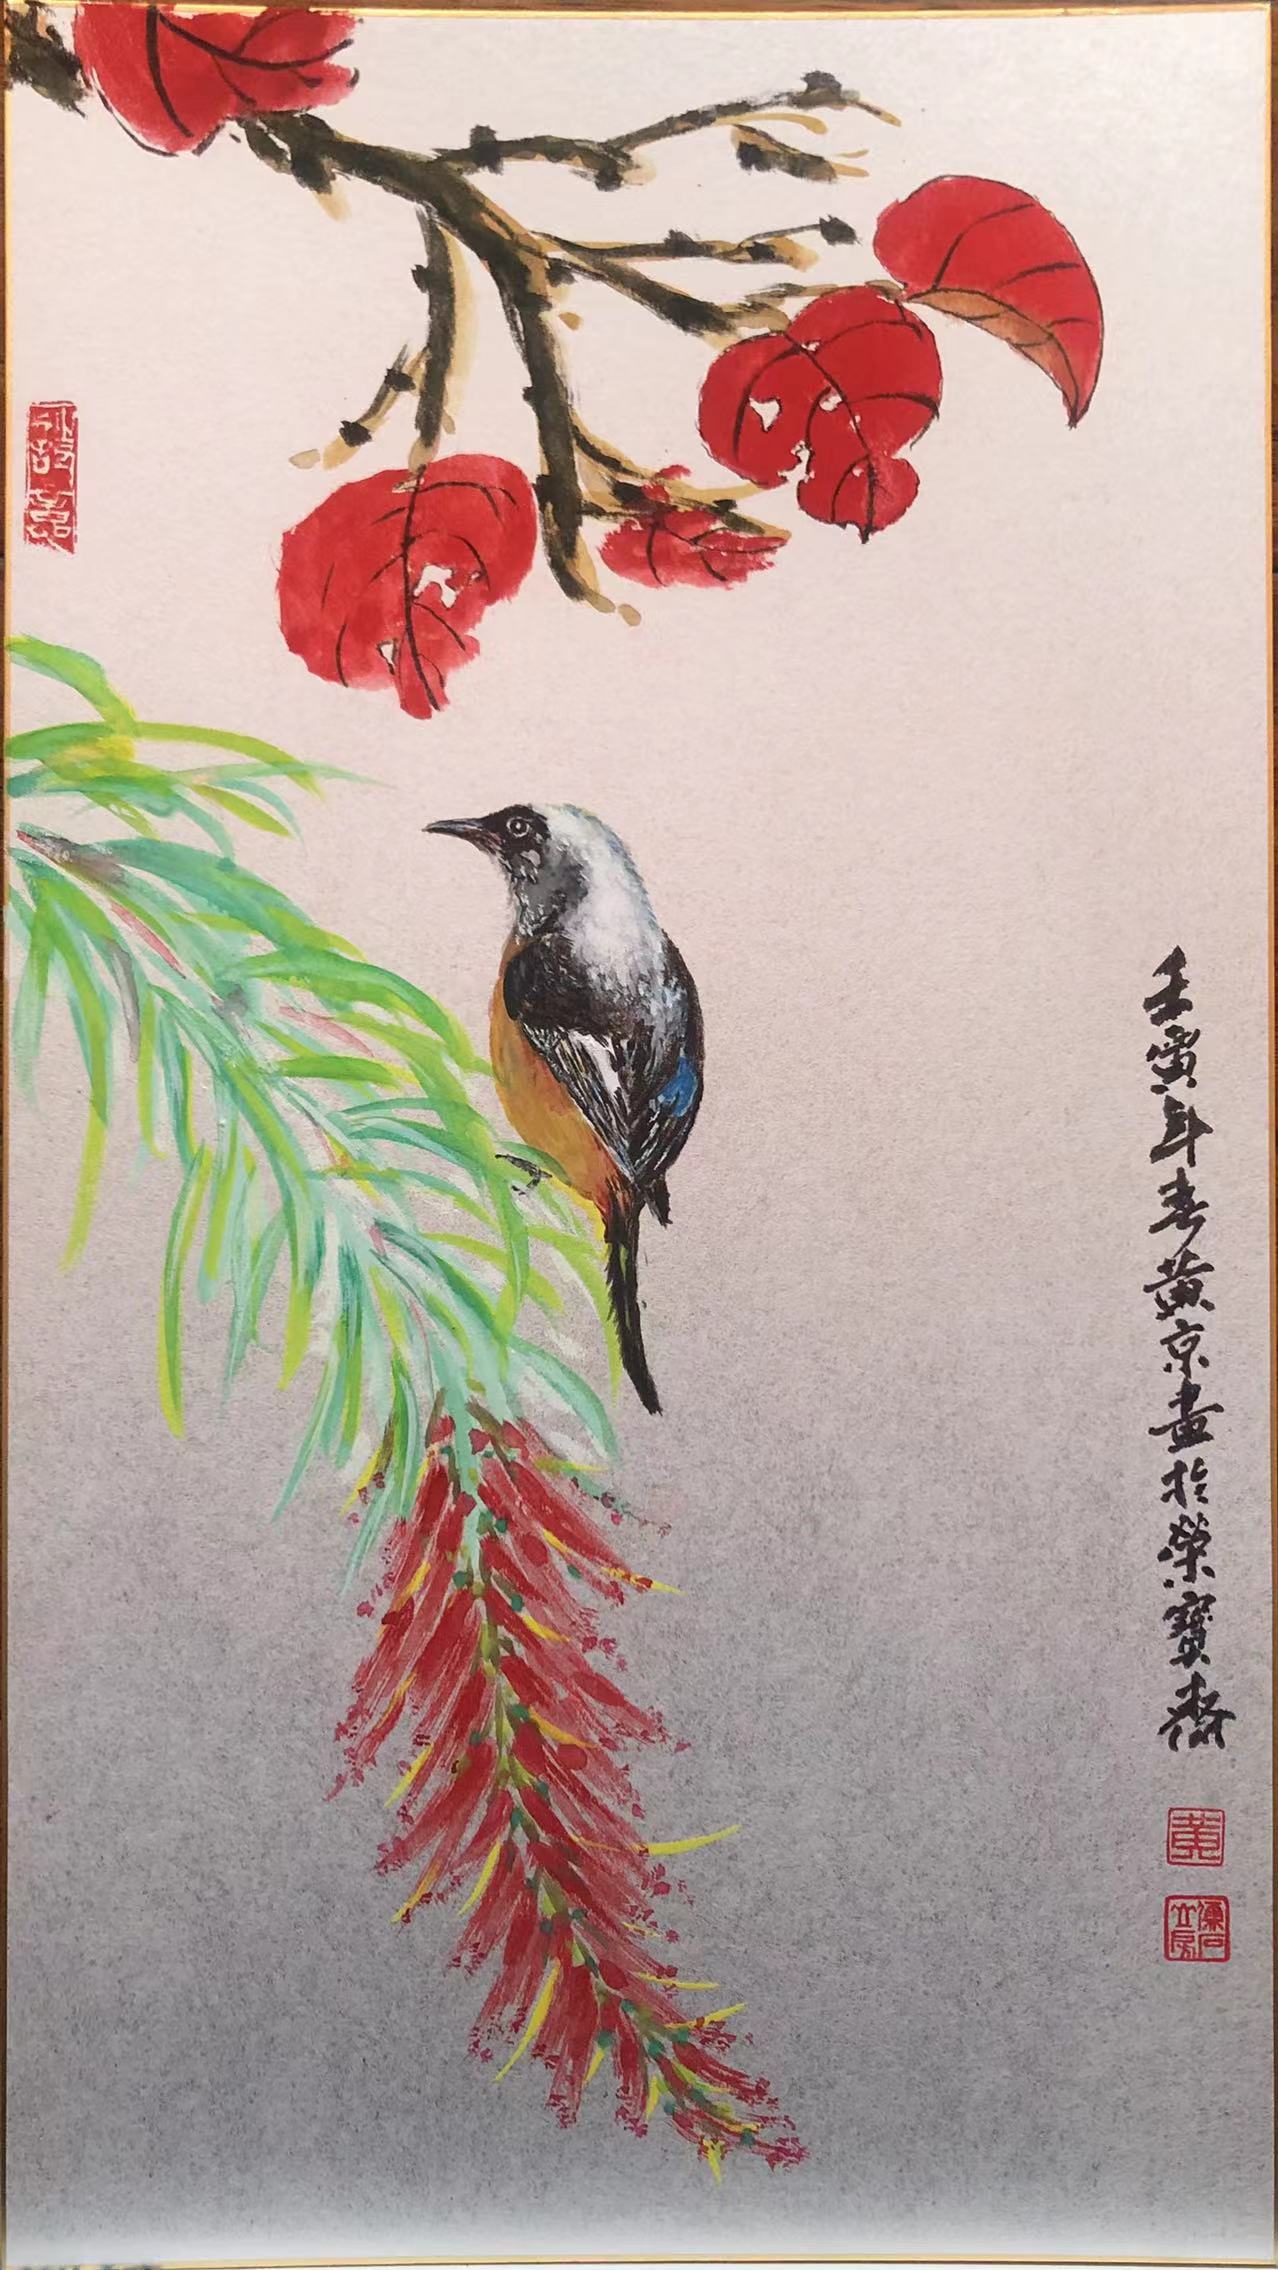 壬寅年春黄京畫於榮寶齋
黄